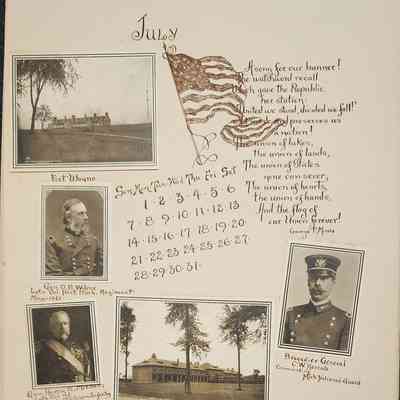 July
A song for our banner!
The watchword recall
Which gave the Republic
her station
United we stand, divided we fall!
and preserves us
a nation!
The union of lakes,
the union of lands,
The union of States
none can sever,
The union of hearts,
the union of hands,
And the flag of
our Union forever!
George P. Morris
Fort Wayne
Sun Mon Tue Wed Thu Fri Sat
1 - 2 - 3 - 4 - 5 - 6
7 - 8 - 9 - 10 - 11 - 12 - 13
14 - 15 - 16 - 17 - 18 - 19 - 20
21 - 22 - 23 - 24 - 25 - 26 - 27
28 - 29 - 30 - 31 -
Gen. O. B. Wilcox
First Mich. Regiment
Brigadier General
C. W.
Mich National Guard